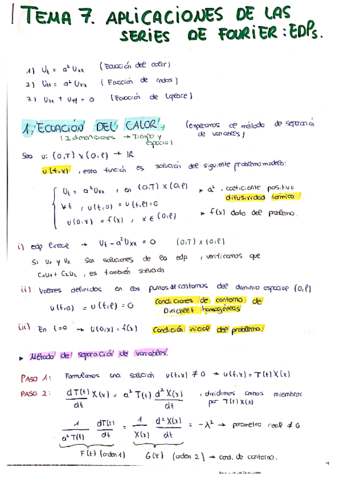 TEMA 7. APLICACIONES DE LAS
SERIES DE FOURIER: EDPs.
1) Ut = a² Uxx (Ecuación del calor)
2) Utt = a² Uxx (Ecuación de ondas)
3) Uxx + Uyy = 0 (Ecuación de Laplace)
1. ECUACIÓN DEL CALOR (empleamos el método de separación de variables)
(2 dimensiones → Tiempo y espacio)
Sea u: (0,T) x (0,ℓ) → ℝ
u(t,x), esta función es solución del siguiente problema modelo:
Ut = a² Uxx, en (0,T) x (0,ℓ) → a², coeficiente positivo
difusividad térmica
∀t, u(t,0) = u(t,ℓ) = 0
u(0,x) = f(x), x ∈ (0,ℓ) → f(x) dato del problema.
i) edp lineal → Ut - a² Uxx = 0 (0,T) x (0,ℓ)
Si U1 y U2 son soluciones de la edp, verificamos que
C1U1 + C2U2, es también solución
ii) Valores definidos en los puntos de contorno del dominio espacial (0,ℓ)
u(t,0) = u(t,ℓ) = 0 Condiciones de contorno de
Dirichlet homogéneas
iii) En t=0 → u(0,x) = f(x) Condición inicial del problema.
▸ Método de separación de variables.
PASO 1: Formulamos una solución u(t,x) ≠ 0 → u(t,x) = T(t) X(x)
PASO 2: dT(t)/dt X(x) = a² T(t) d²X(x)/dt, dividimos ambos miembros
por T(t) X(x)
1/a²T(t) dT(t)/dt = 1/X(x) d²X(x)/dt = -λ² → parámetro real ≠ 0
F(t) (orden 1) G(x) (orden 2) → cond. de contorno.